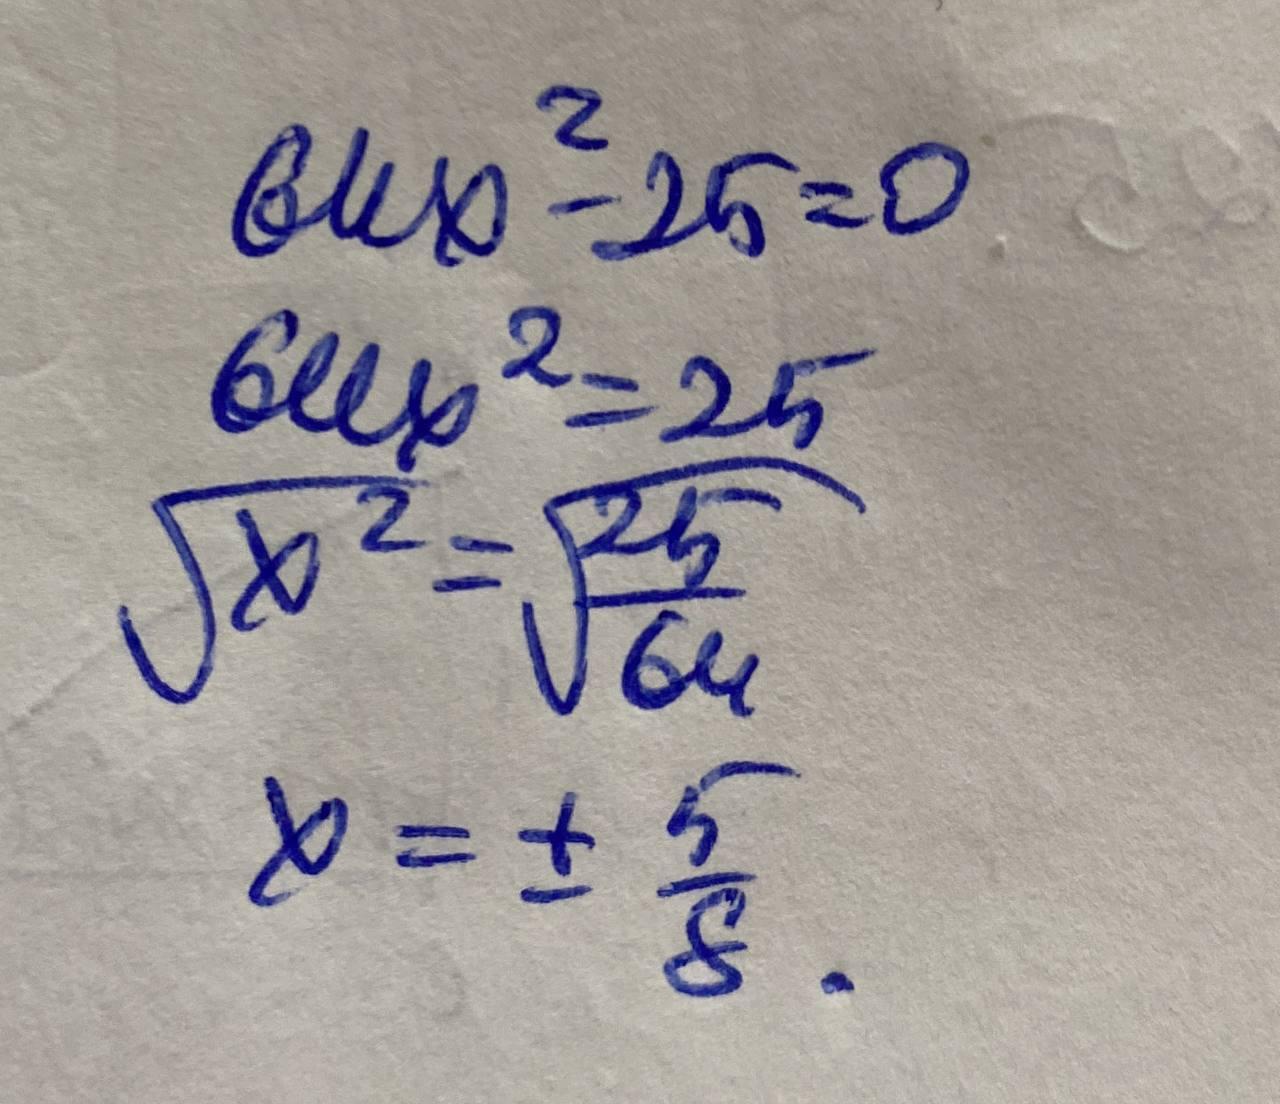 64x² - 25 = 0
64x² = 25
√x² = √25/64
x = ± 5/8.